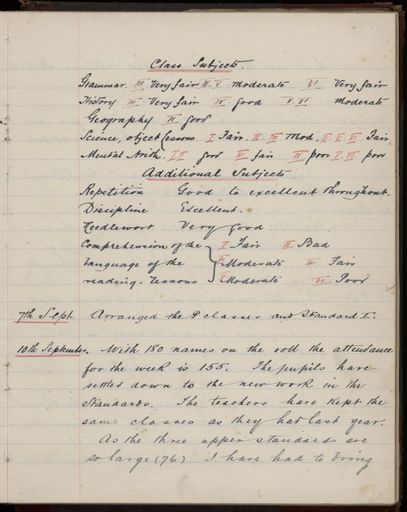 Class Subjects.
Grammar. III Very fair IV. V moderate VI Very fair
History III Very fair IV. good V. VI moderate
Geography IV good
Science, object lessons I Fair. II III Mod. IV V. VI Fair
Mental Arith. I II good III fair IV poor V. VI poor
Additional Subjects
Repetition Good to excellent throughout.
Discipline Excellent.
Needlework Very good.
Comprehension of the I Fair II Bad
language of the Moderate Fair
reading-lessons Moderate VI Poor
7th Sept. Arranged the P classes and Standard I.
10th September. With 180 names on the roll the attendance
for the week is 155. The pupils have
settled down to the new work in the
standards. The teachers have kept the
same classes as they had last year.
As the three upper standards are
so large (76) I have had to bring